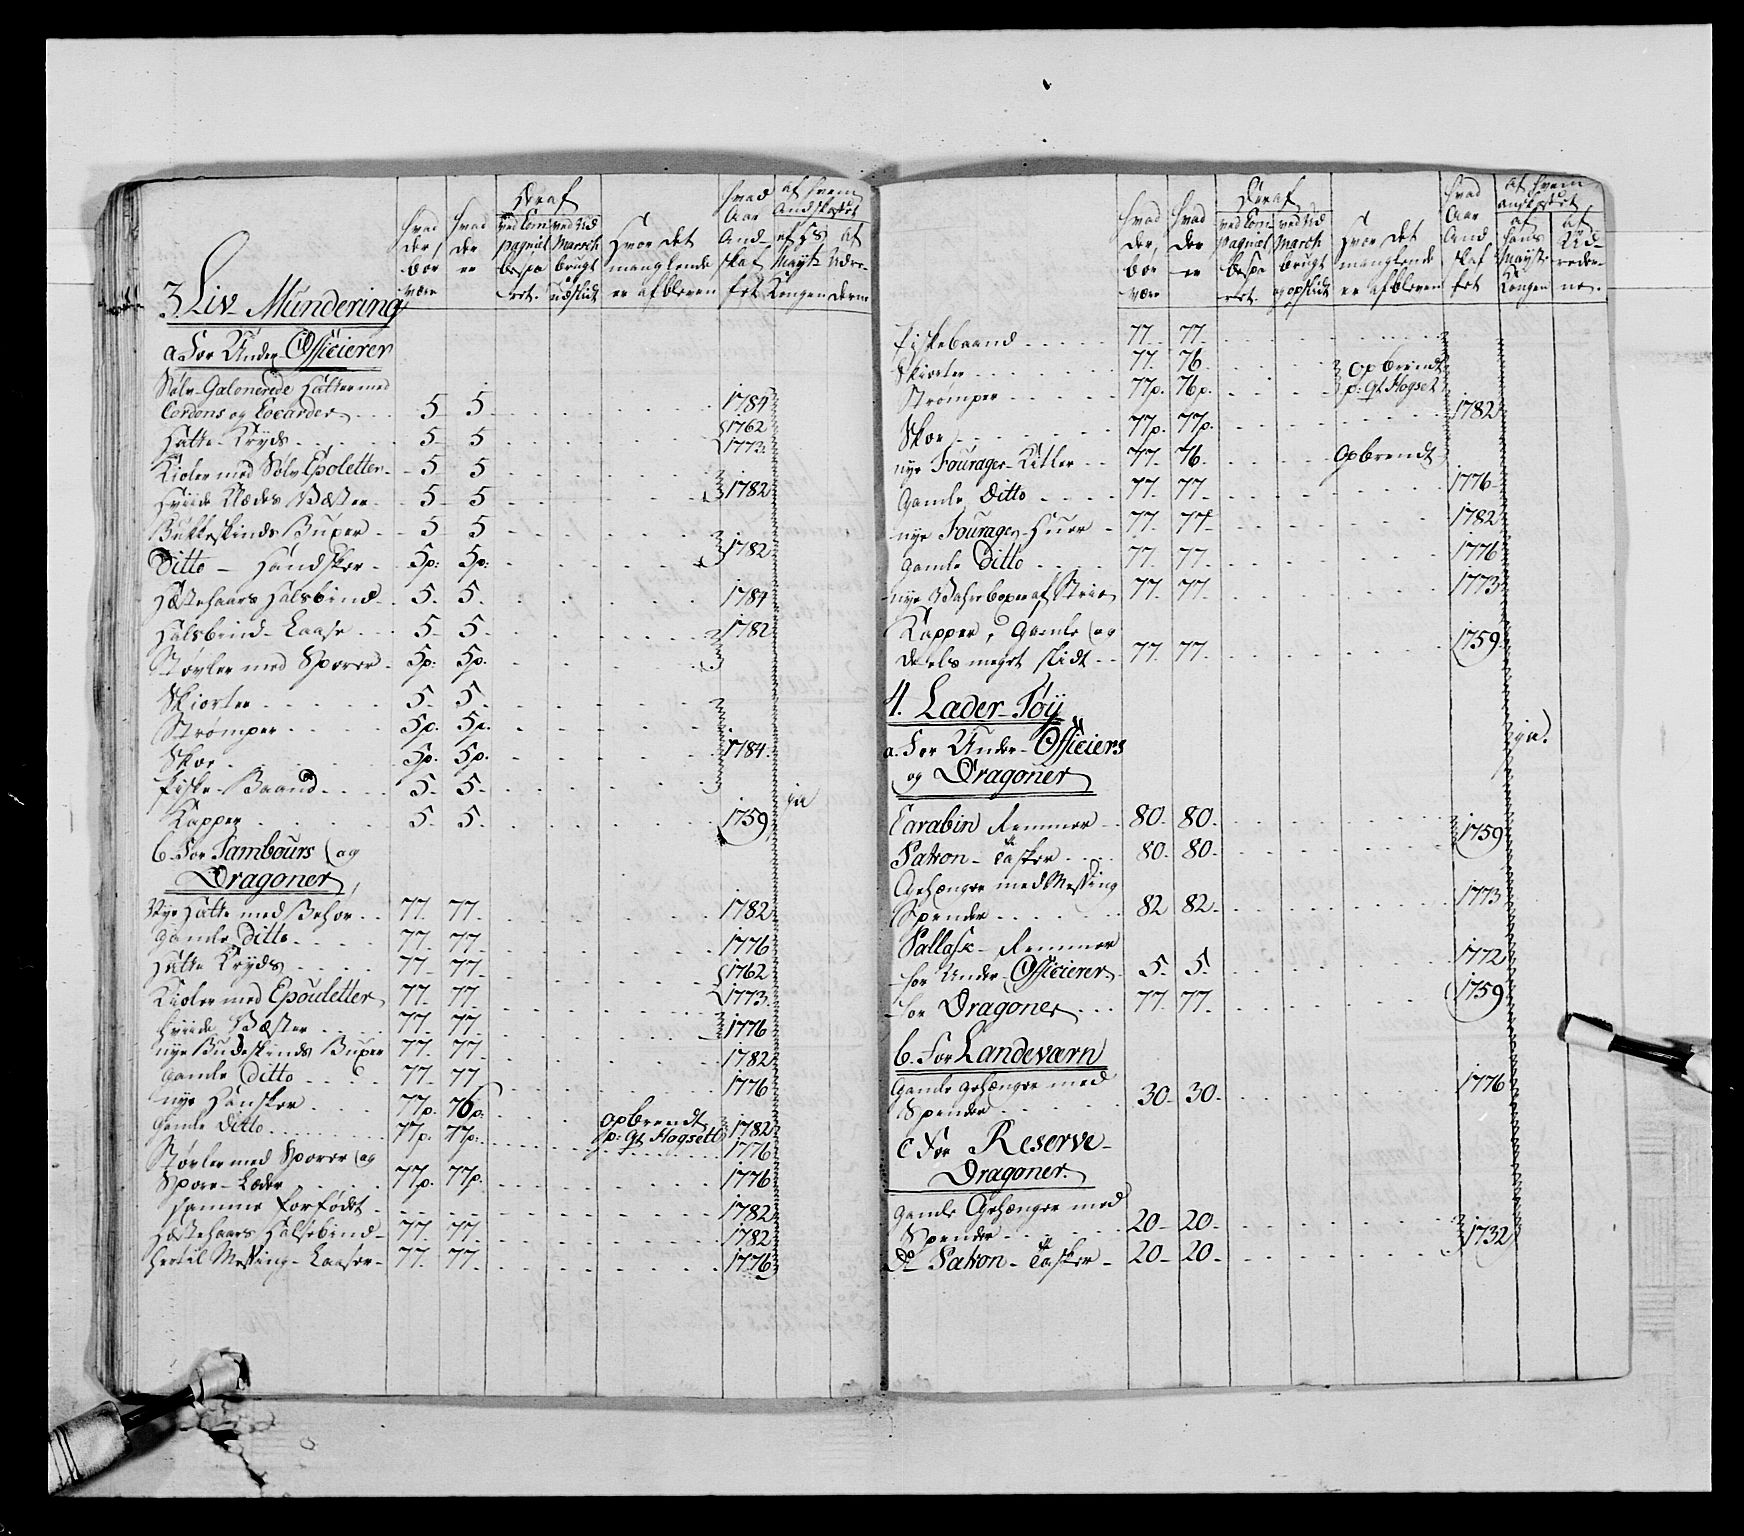 Hvad der bør være | Hvad der er | Deraf | ved Com pagniet | ved Ud Marsch brugt | Hvor det manglende er afbleven | Hvad Aar And skaf fet | af hvem Andskaffet | af Hs Mayt Kongen | af Udre derne
3 Liv Mundering
a For Under Officierer
Sølv Galonerede Hatter med
Cordons og Cocarder . . 5 5 1784
Hatte-Kryds . . . 5 5 1762 1773
Kioler med Sølv Epoletter 5 5
Hviide Klædes Væster 5 5 1782
Bukkeskinds Buxer 5 5
Ditto - Handsker 5p: 5p: 1782
Hæstehaars Halsbind 5 5 1784
Halsbind Laase 5 5 1782
Støvler med Sporer 5p: 5p:
Skiorter 5 5
Strømper 5p. 5p.
Skoe 5p. 5p. 1784
Piske-Baand 5 5
Kapper 5 5 1759 ja
b. For Tambours og
Dragoner
Nye Hatte med Behør 77 77 1782
Gamle Ditto 77 77 1776
Hatte Kryds 77 77 1762
Kioler med Epouletter 77 77 1773
Hviide Væster 77 77 1776
nye Bukeskinds Buxer 77 77 1782
Gamle Ditto 77 77 1776
nye Hansker 77p. 76p. opbrendt 1782
Gamle Ditto 77p. 77p. p: Qt Hogsett 1776
Støvler med Sporer og
Spore-Læder 77p. 77p. 1776
Samme Forfødet 1782
Hæstehaars Halsebind 77 77 1782
hertil Messing-Laaser 77 77 1776
Hvad der bør være | Hvad der er | Deraf | ved Com pagniet | ved Ud March brugt og opslidt | Hvor det manglende er afbleven | Hvad Aar And skaf fet | af hvem anskaffet | af Hans Mayts Kongen | af Ud- reder- ne.
Piskebaand 77 77
Skiorter 77 76 opbrendt
Strømper 77p. 76p. p: Qt Hogset
Skoe 77p. 77p. 1782
nye Fourage-Kitler 77 76 Opbrendt
Gamle Ditto 77 77 1776
nye Fourage-Huer 77 77 1782
Gamle Ditto 77 77 1776
nye Buxer af Strie 77 77 1773
Kapper, Gamle og
deels meget slidt 77 77 1759
4. Læder-Tøy
a. For Under-Officiers ja.
og Dragoner
Carabin Remmer 80 80 1759
Patron-Tasker 80 80
Gehænger med Messing
Spender 82 82 1773
Pallask-Remmer
for Under-Officierer 5 5 1772
for Dragoner 77 77 1759
b. For Landeværn
Gamle Gehænger med
Spender 30 30 1776
c For Reserve-
Dragoner.
Gamle Gehænger med
Spender 20 20
Do Patron-Tasker 20 20 1732